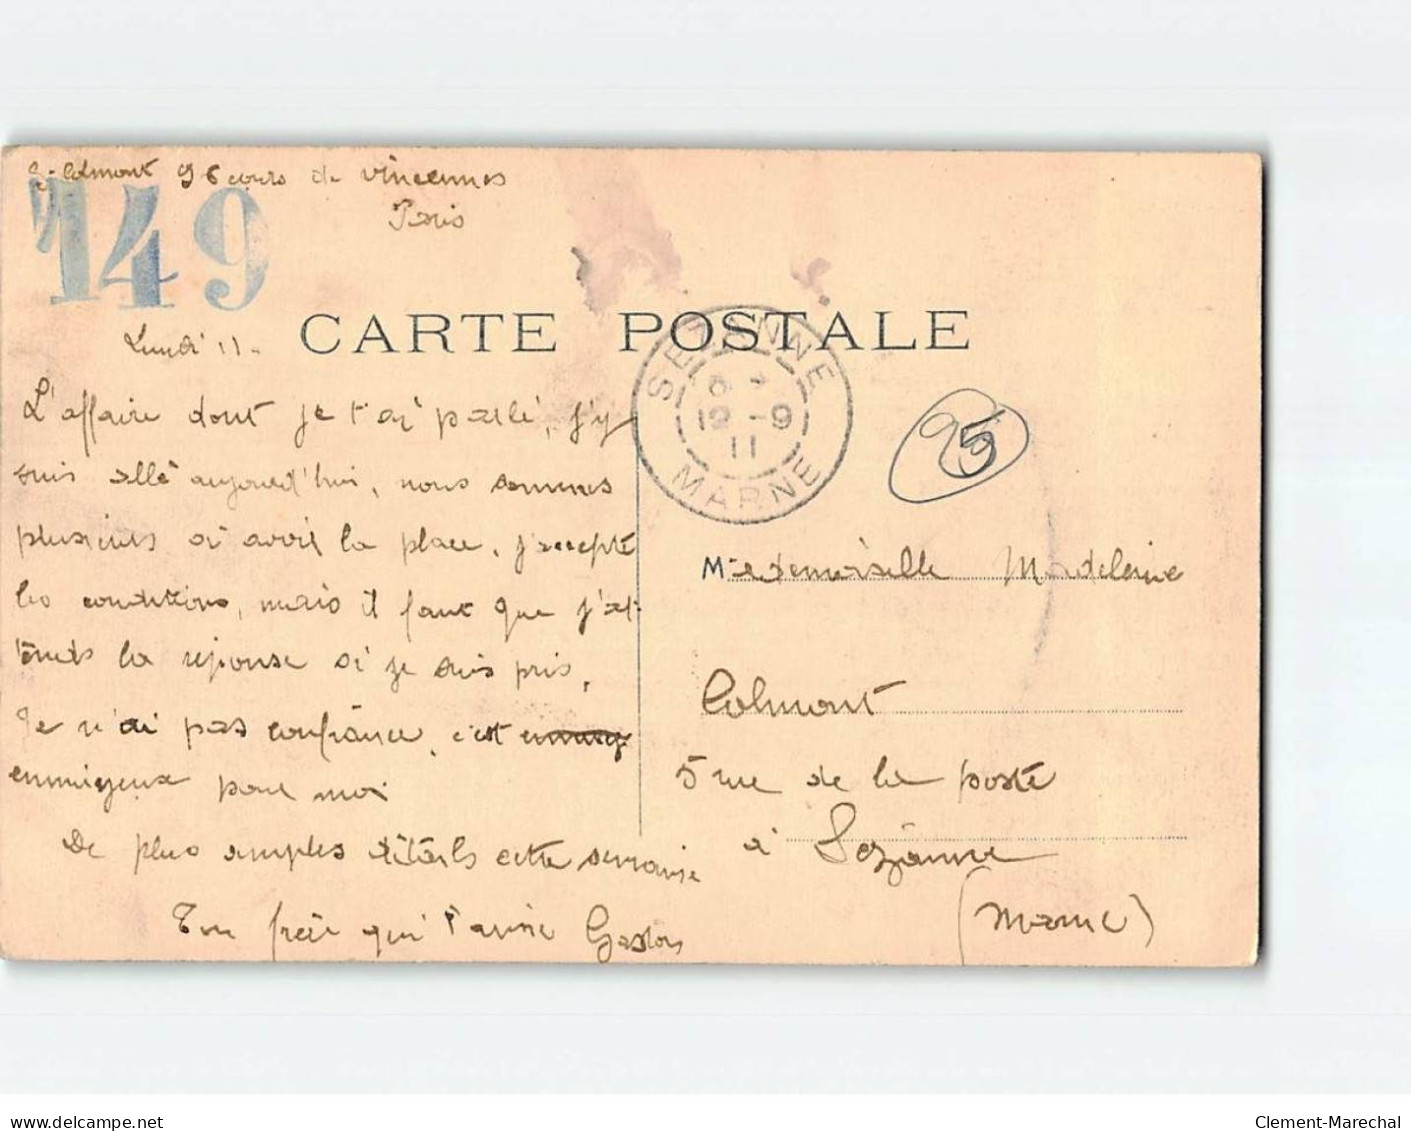 G. Colmont 96 cours de Vincennes
Paris
149
CARTE POSTALE
Lundi 11.
SEZANNE
12 -9
11
MARNE
5
L'affaire dont je t'ai parlé, j'y
suis allé aujourd'hui, nous sommes
plusieurs à avoir la place. j'accepte
les conditions, mais il faut que j'at-
tends la réponse si je suis pris.
Je n'ai pas confiance, c'est
ennuyeux pour moi
De plus amples détails cette semaine
Ton frère qui t'aime Gaston
Mademoiselle Madeleine
Colmont
5 rue de la poste
à Sezanne
(Marne)
www.delcampe.net
Clement-Marechal